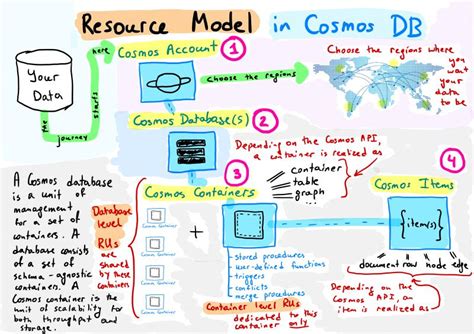 Resource Model in Cosmos DB
Your
Data
the
journey
starts
here
Cosmos Account
1
choose the regions
Choose the regions where
you
want
your
data
to
be
Cosmos Database(s)
2
Depending on the Cosmos API,
a container is realized as
container
table
graph
...
Cosmos Containers
3
4
Cosmos Items
A Cosmos database
is a unit of
management
for a set of
containers. A
database consists
of a set of
schema-agnostic
containers. A
Cosmos container is the
unit of scalability for
both throughput and
storage.
Database
level
RUs
are
shared
by these
containers
Cosmos Container
Cosmos Container
Cosmos Container
Cosmos Container
+
stored procedures
user-defined functions
triggers
conflicts
merge procedures
Container level RUs
dedicated to this
container only
{item(s)}
document row node edge
Depending on the
Cosmos API, an
item is realized as